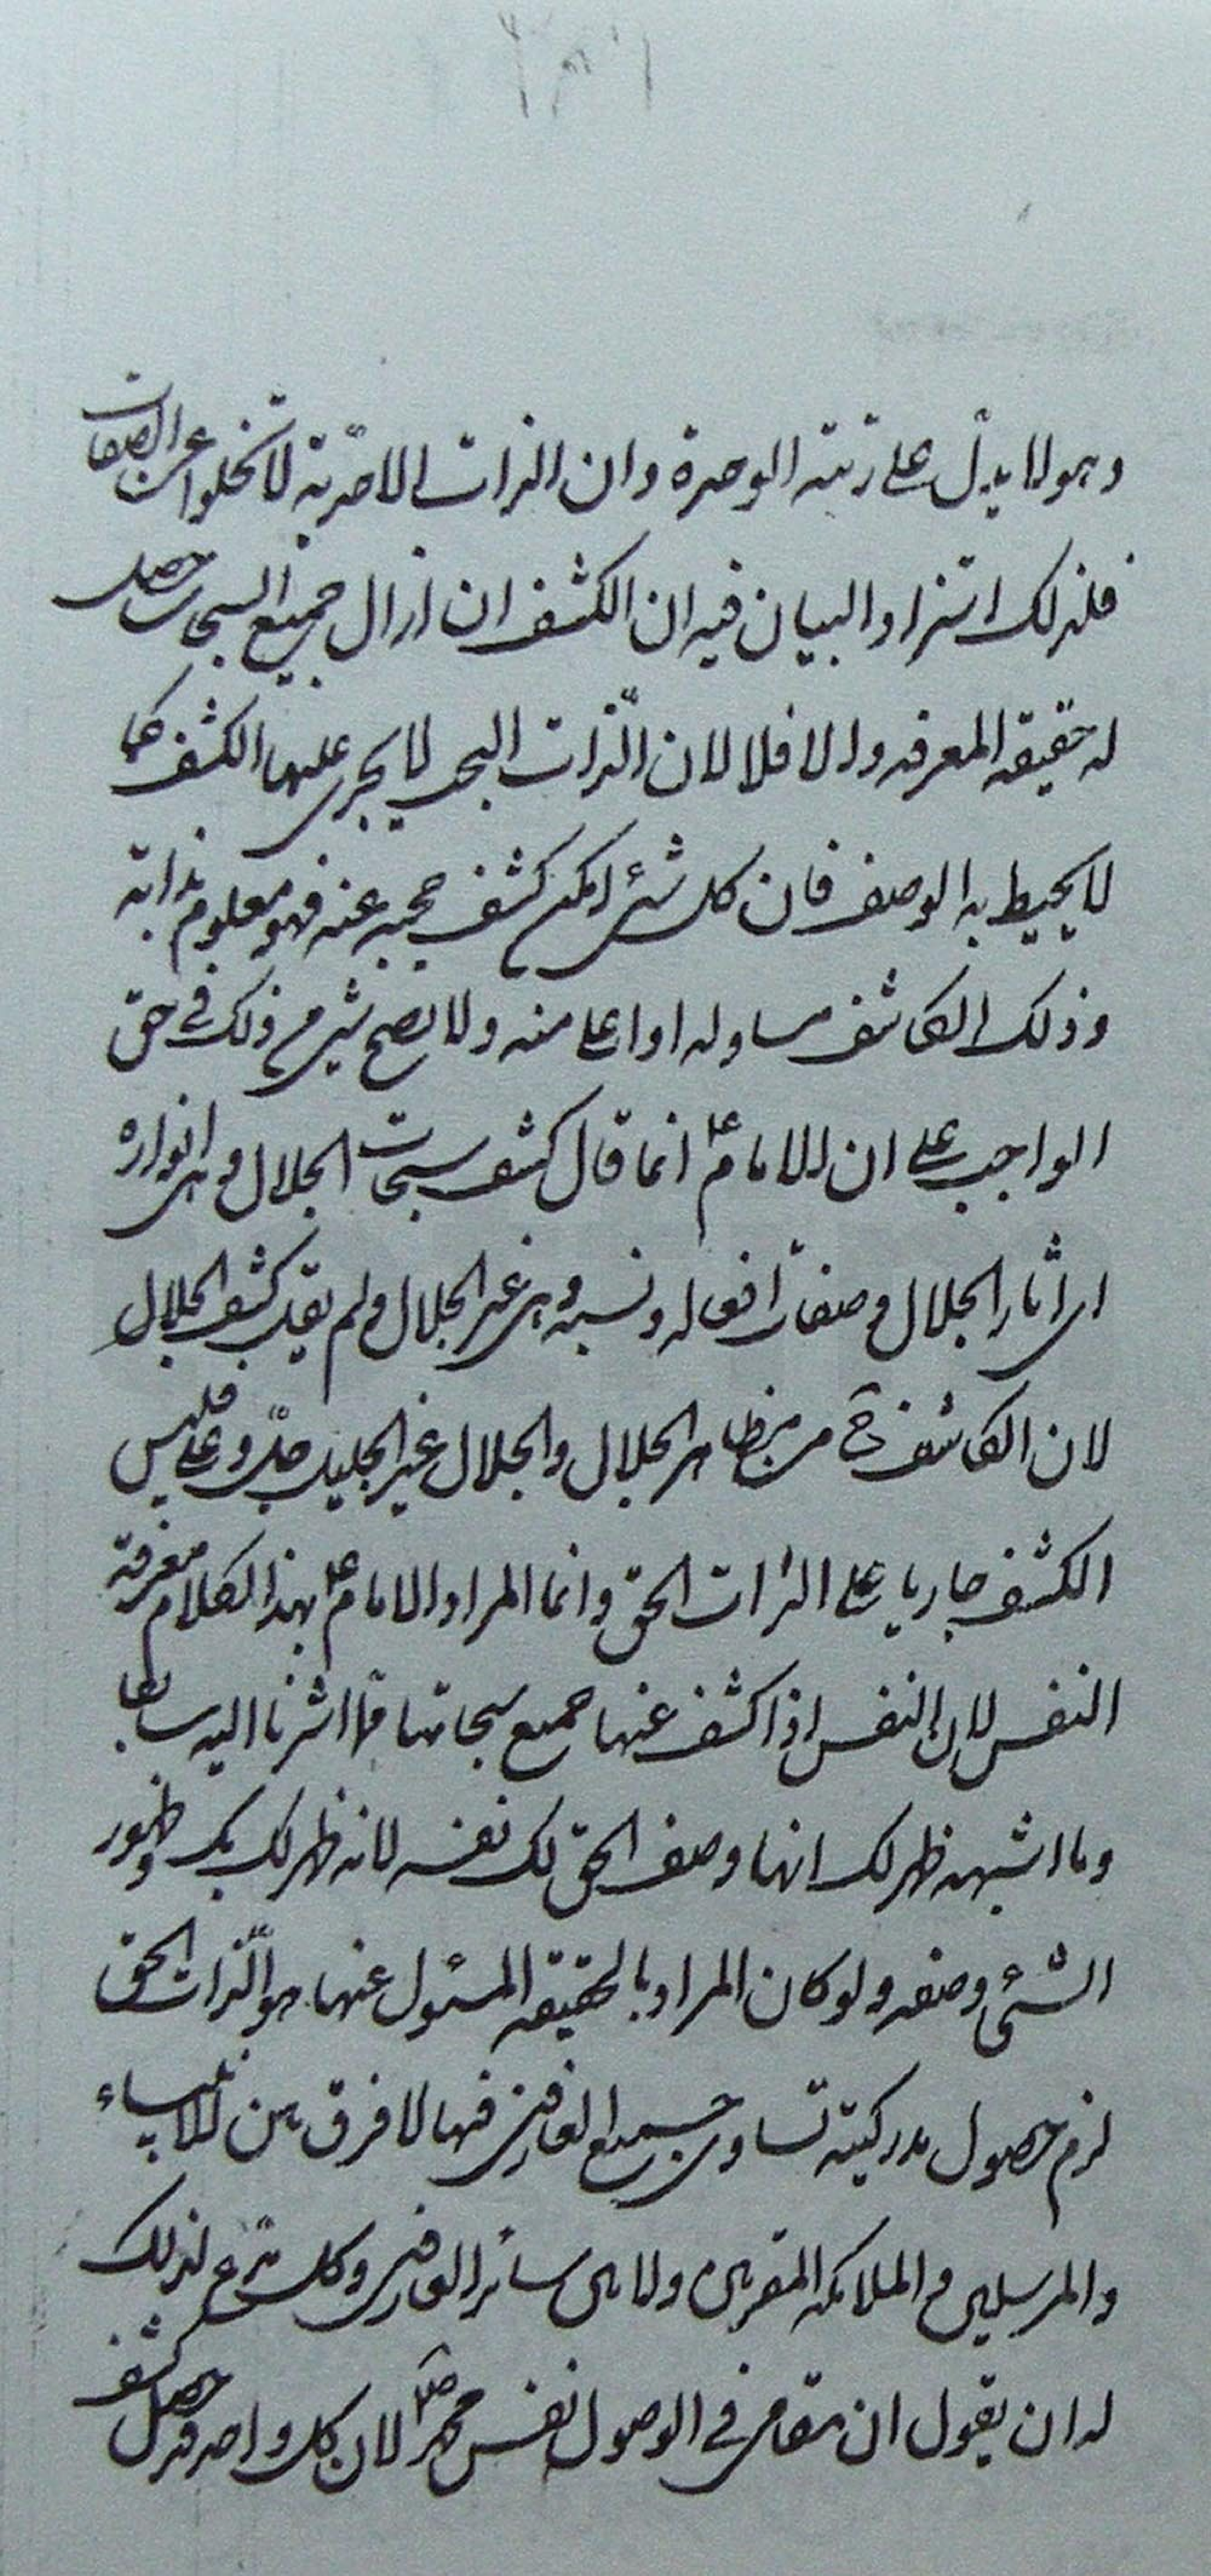 وهولا يدل على رتبته الوحدة وان الذات الاحدية لا تخلوا عن الصفات
فلذلك استزاد البيان فيه ان الكشف ان ازال جميع السبحات حصل
له حقيقه المعرفه والا فلا لان الّذات البحت لا يجرى عليها الكشف كما
لا يحيط به الوصف فان كل شئ امكن كشف حجبه عنه فهو معلوم بذاته
وذلك الكاشف مساو له او اعلى منه ولا يصح شئ من ذلك في حق
الواجب على ان الامام ع انما قال كشف سبحات الجلال وهى انواره
اى اثار الجلال وصفات افعاله ونسبه وهى غير الجلال ولم يقل كشف الجلال
لان الكاشف ح من مظاهر الجلال والجلال غير الجليل جلّ وعلا فليس
الكشف جاريا على الذات الحق وانما المراد الامام ع بهذا الكلام معرفة
النفس لان النفس اذا كشف عنها جميع سبحاتها مما اشرنا اليه سابقا
وما اشبهه ظهر لك انها وصف الحق لك نفسه لانه ظهر لك بك وظهور
الشئ وصفه ولو كان المراد بالحقيقه المسئول عنها هو الّذات الحق
لزم حصول مدركيته تساوى جميع العارفين فيها لا فرق بين الانبياء
والمرسلين و الملائكه المقربين ولا بين سائر العارفين وكل مدّع لذلك
له ان يقول ان مقامى في الوصول نفس محمد ص لان كل واحد قد حصل كشف